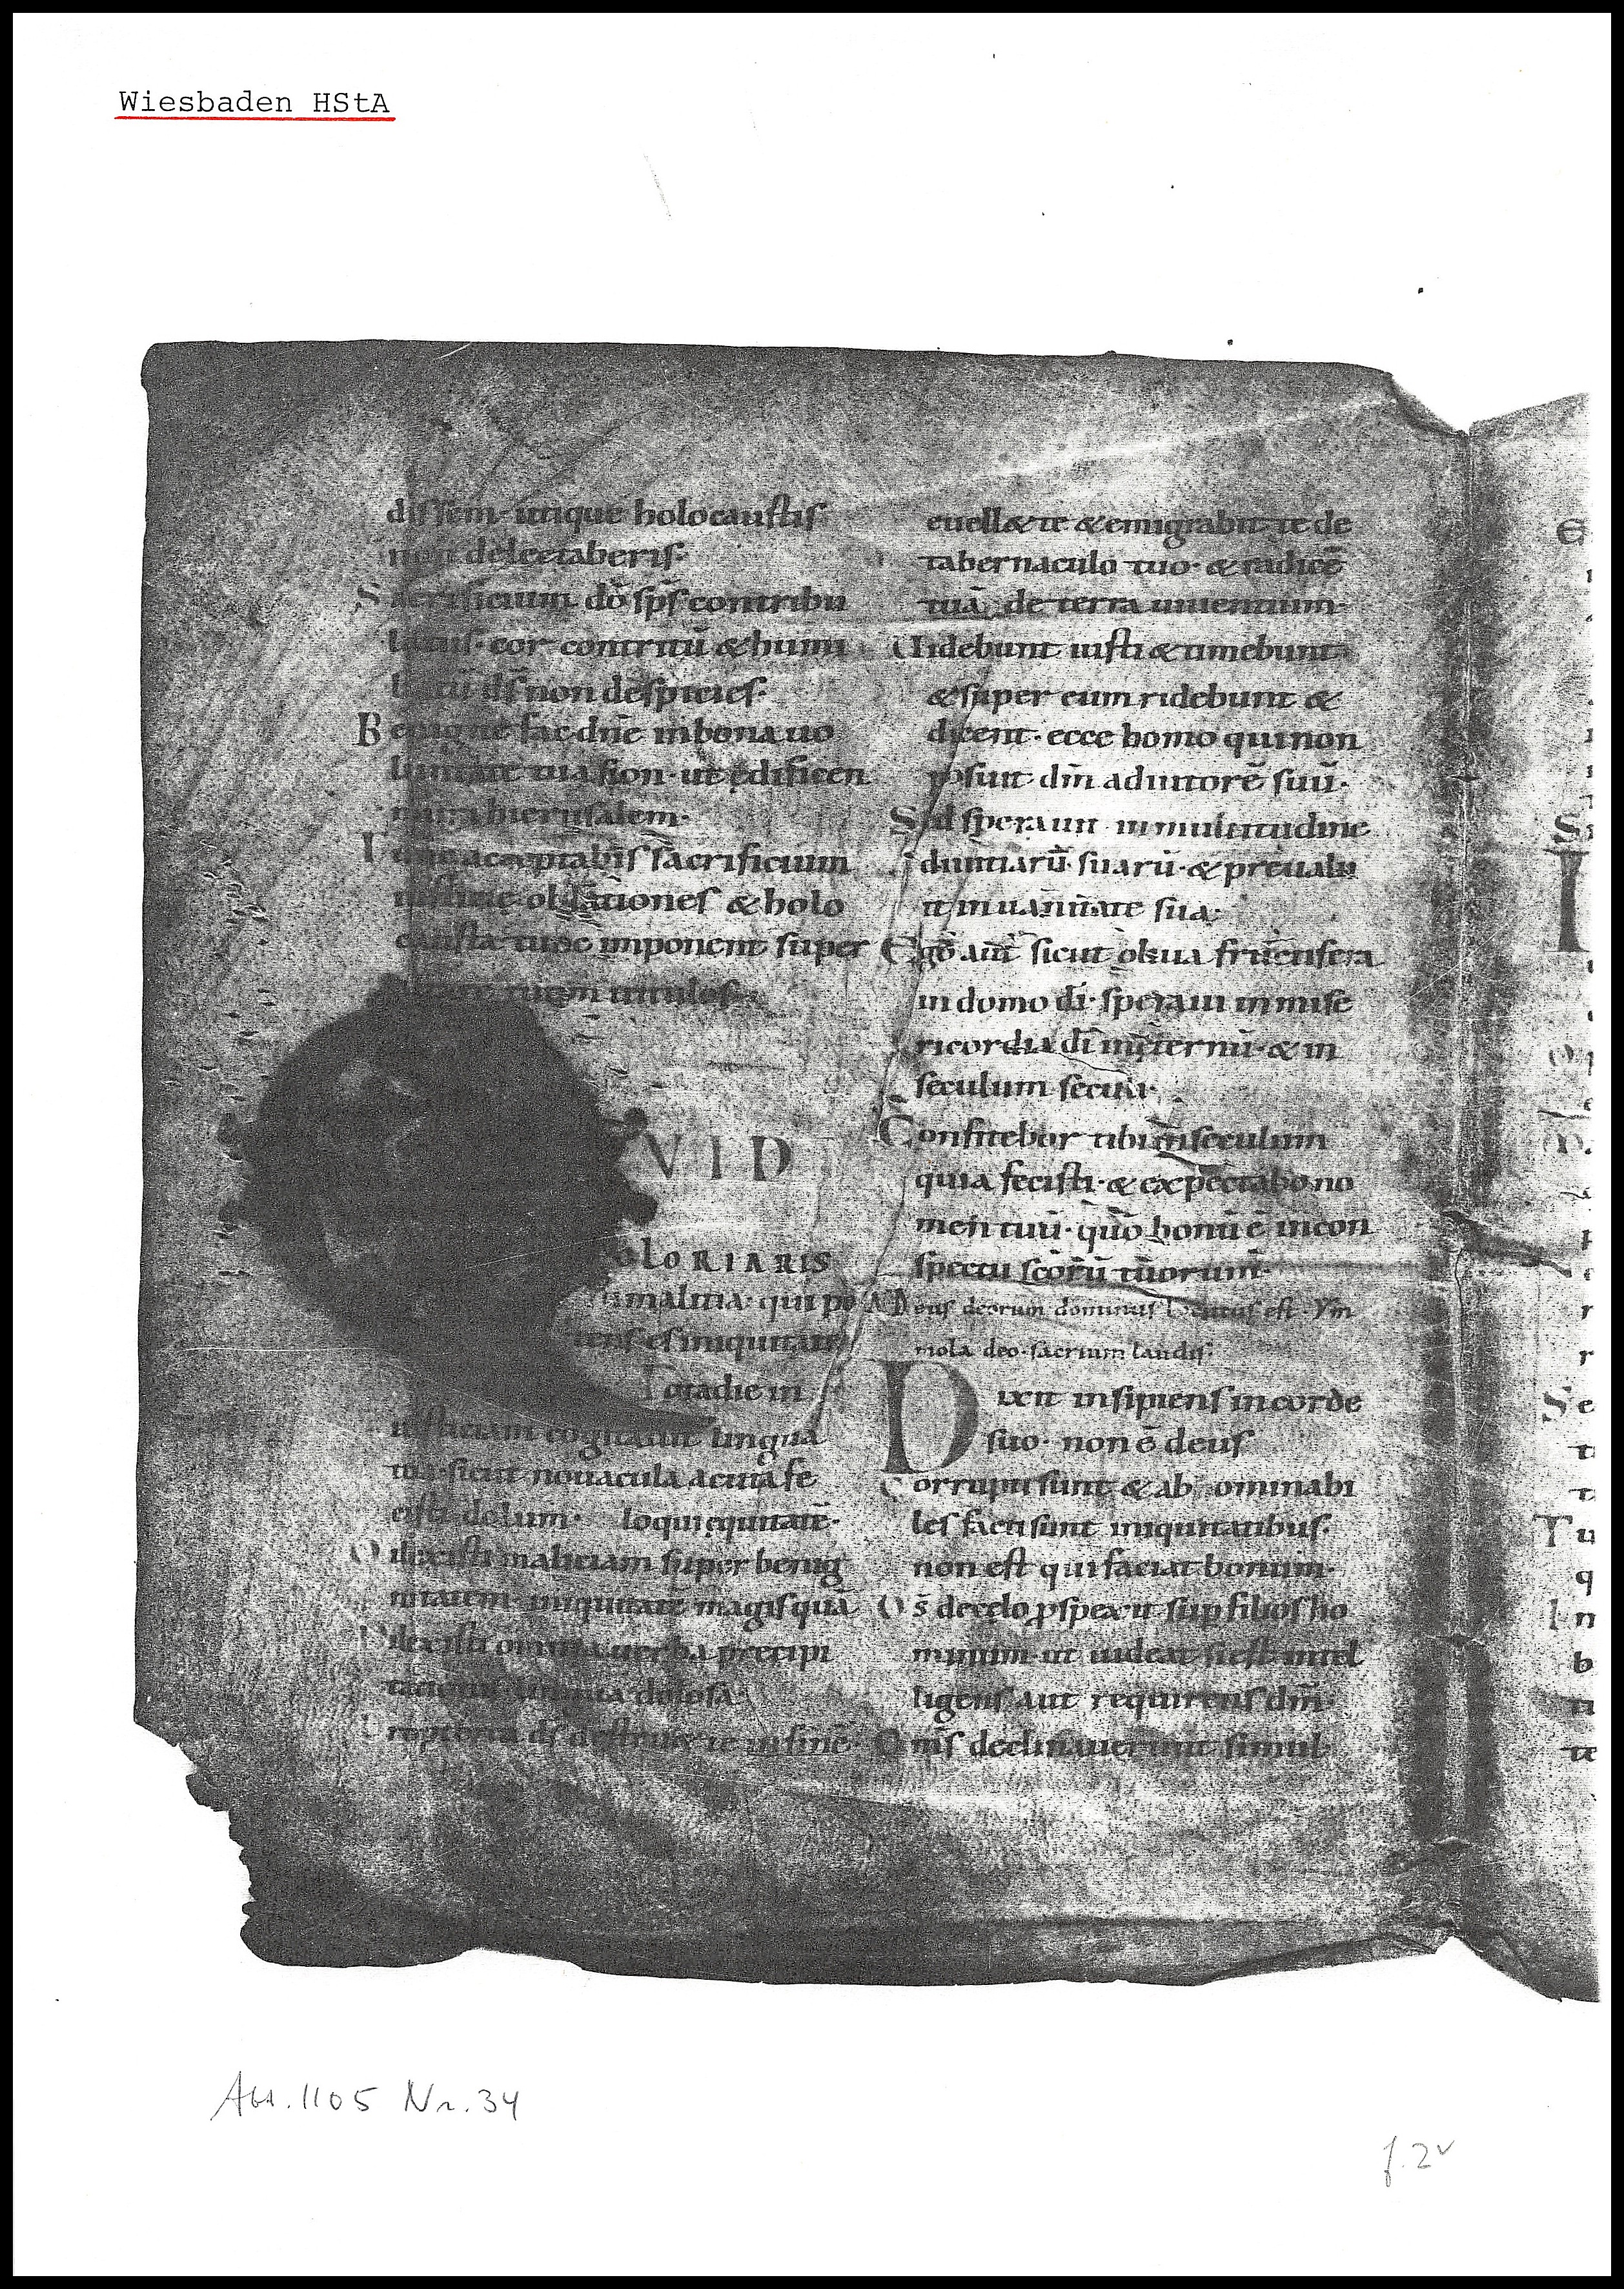 Wiesbaden HStA
dissem utique holocaustis
non delectaberis·
Sacrificium dō sp̄s contribu
latus· cor contritū & humi
liatū d̄s non despicies·
Benigne fac dn̄e in bona uo
luntate tua sion· ut ędificen
muri hierusalem·
Tunc acceptabis sacrificium
iusticię oblationes & holo
causta tunc imponent super
tuum uitulos·
VID
GLORIARIS
in malitia· qui po
tens es iniquitate
Tota die in
iusticiam cogitauit lingua
tua· sicut nouacula acuta fe
cisti dolum· loqui ęquitatē·
Dilexisti maliciam super benig
nitatem· iniquitatē magis quā
Dilexisti omnia uerba precipi
tationis· lingua dolosa·
Propterea d̄s destru& te in finē·
euell& te & emigrabit te de
tabernaculo tuo· & radicē
tuā de terra uiuentium·
Uidebunt iusti & timebunt
& super eum ridebunt &
dicent· ecce homo qui non
posuit dm̄ adiutorē suū·
Sed sperauit in multitudine
diuitiarū suarū· & preualu
it in uanitate sua·
Ego aut̄ sicut oliua fructifera
in domo dī· speraui in mise
ricordia dī in ęternū· & in
seculum seculi·
Confitebor tibi in seculum
quia fecisti· & expectabo no
men tuū· qūo bonū ē in con
spectu scōrū tuorum·
A Deus deorum dominus locutus est· Ym
mola deo· sacrium laudis·
Dixit insipiens in corde
suo· non ē deus
Corrupti sunt & ab ominabi
les facti sunt iniquitatibus·
non est qui faciat bonum·
Ds̄ de cęlo ꝓspexit sup̄ filios ho
minum· ut uideat si est intel
ligens aut requirens dm̄·
Om̄s declinauerunt simul·
Abt. 1105 Nr. 34
f. 2v